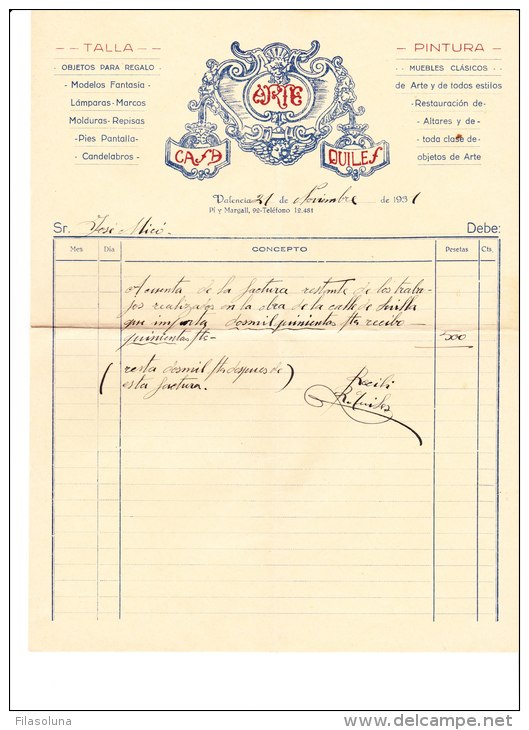 TALLA
OBJETOS PARA REGALO
- Modelos Fantasía -
Lámparas-Marcos
Molduras-Repisas
-Pies Pantalla-
- Candelabros -
ARTE
CASA QUILES
PINTURA
MUEBLES CLÁSICOS
de Arte y de todos estilos
-Restauración de-
- Altares y de -
- toda clase de-
objetos de Arte
Valencia 21 de Noviembre de 1931
Pi y Margall, 92-Teléfono 12.481
Sr. José Micó. Debe:
Mes Día CONCEPTO Pesetas Cts.
A cuenta de la factura restante de los traba-
jos realizados en la obra de la calle de Sevilla
que importa dosmil quinientas Pts recibo
quinientas Pts- 500
(resta dosmil Pts. despues de
esta factura.)
Recibí
R. Quiles
Filasoluna
www.delcampe.net